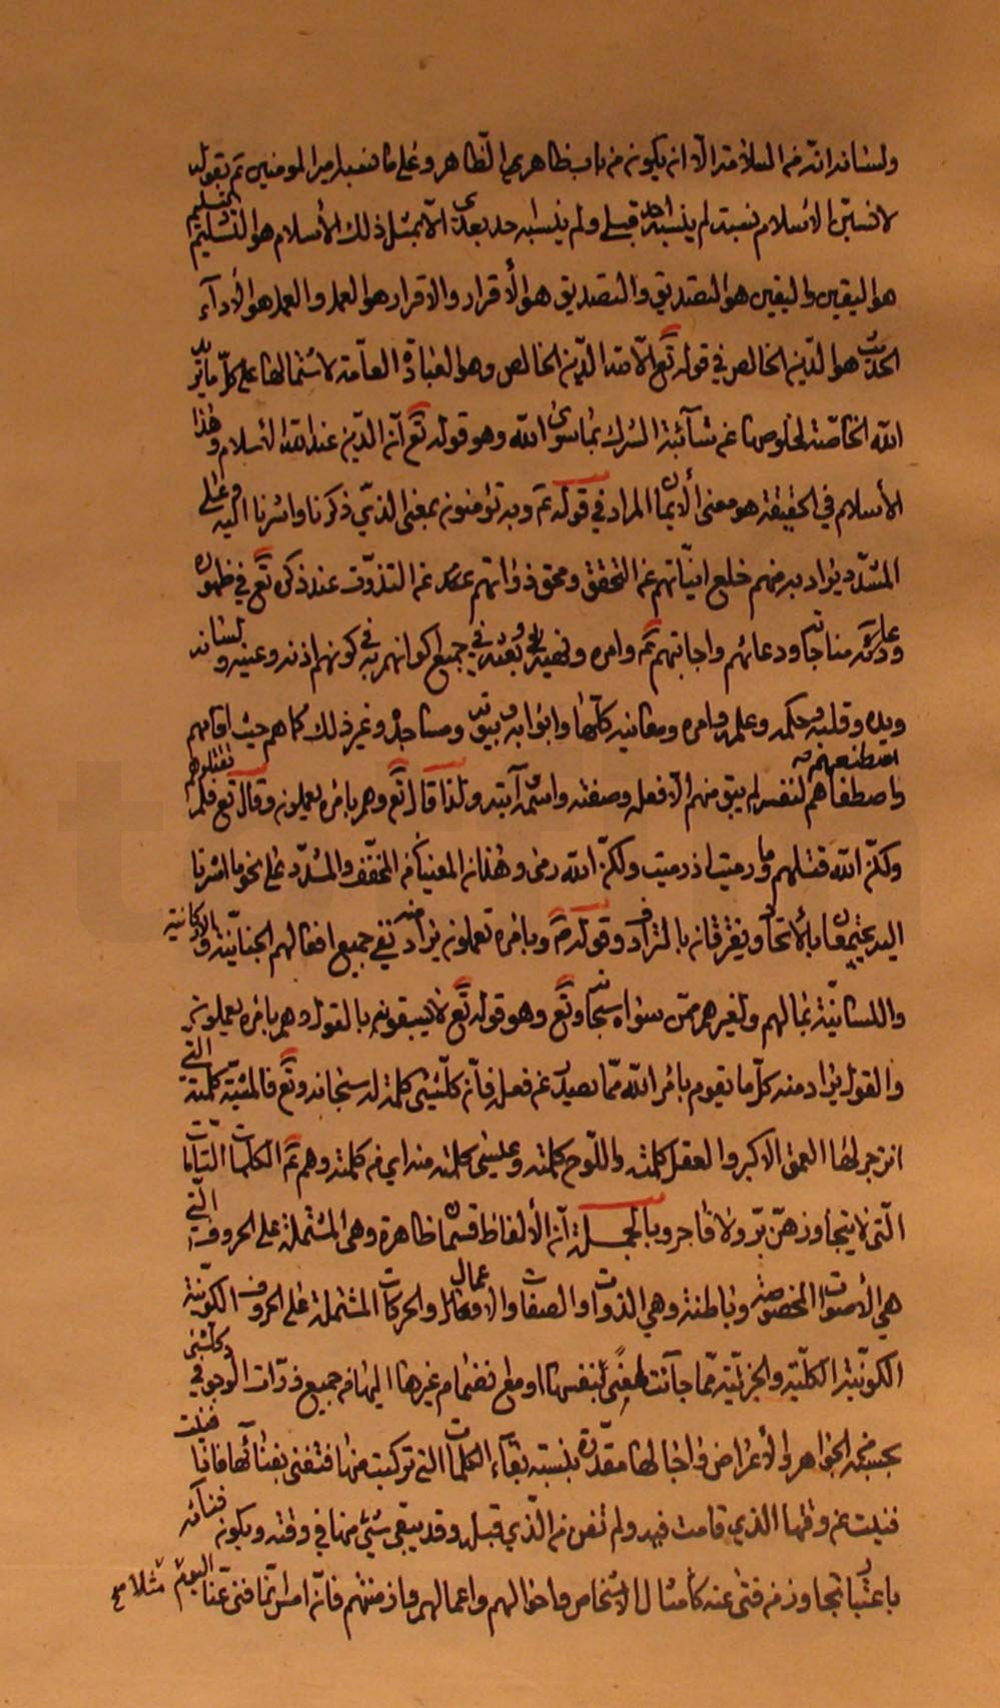 ولسانه انه من السلامة الا انه يكون من باب ظاهري الظاهر وعلى ما فسر امير المومنين ثم بقوله
لانسبن الاسلام نسبة لم ينسبه احد قبلي ولم ينسبه احد بعدي الا بمثل ذلك الأسلام هو التسليم والتسليم
هو اليقين واليقين هو التصديق والتصديق هو الأقرار والاقرار هو العمل والعمل هو الأدآء
الحديث هو الدّين الخالص في قوله تع الا لله الدّين الخالص وهو العبادة العامّة لاشتمالها على كلّ ما يريد
الله الخاصّة لخلوصها عن شآئبة الشرك بما سوى الله وهو قوله تع انّ الدّين عند الله الاسلام وهذا
الأسلام في الحقيقة هو معنى الايمان المراد في قوله تم وبه تؤمنون بمعنى الذيّ ذكرنا واشرنا اليه وعلى
المشدّد يراد به منهم خلع انيّاتهم عن التحقق ومحق ذواتهم عن التذوّت عند ذكره تع في ظهوره
مناجاته ودعائهم واجابتهم تم وامره ونهيه في جميع اكوانهم به في كونهم اذنه وعينه ولسانه
ويده وقلبه وحكمه وعلمه وامره ومعانيه كلّها وابوابه وبيوته ومساجده وغير ذلك كما هم حيث اقامهم
اصطنعهم
واصطفاهم لنفسه لم يبق منهم الّا فعله وصفته واسمه آيته ولذا قال تع وهم بامره يعملون وقال تع فلم تقتلوهم
ولكنّ الله قتلهم وما رميت اذ رميت ولكنّ الله رمى وهذان المعنيان من المخفّف والمشدّد على نحو ما اشرنا
اليه يجتمعان بالأتحاد ويفترقان بالترادف وقوله تم وبامره تعملون يراد منه نفي جميع افعالهم الجنانيّة والاركانية
واللسانيّة بمالهم ولغيرهم ممّن سواه سبحانه وتع وهو قوله تع لا يسبقونه بالقول وهم بامره يعملون
والقول يراد منه كلّ ما يقوم بامر الله ممّا يصدر عن فعله فانّ كلّ شئ كلمة له سبحانه وتع فالمشيّة كلمته التي
انزجر لها العمق الاكبر والعقل كلمته واللّوح كلمته وعيسى كلمته منه اي من كلمته وهم تم الكلمات التّامات
الّتى لا يتجاوزهنّ برّ ولا فاجر وبالجملة انّ الألفاظ قسمان ظاهرة وهي المشتملة على الحروف الّتي
هي الأصوات المخصوصة وباطنة وهي الذوات والصفات والاعمال والحركات المشتملة على الحروف الكونيّة
الكونيّة الكلّيّة والجزئيّة ممّا جآئت لمعنًى لنفسها او مع انضمام غيرها اليها في جميع ذرّات الوجود في كل شئ
بحسبه من الجواهر والأعراض واجالها مقدّرة بنسبة بقآء الكلمات التي تركبت منها فتفنى بفنائها فاذا فنيت
فنيت عن وقتها الذي قامت فيه ولم تفن من الّذي قبله وقد يبقى شئ منها في وقته ويكون فنآئه
باعتبار تجاوز من فنى عنه كامثال الاشخاص واحوالهم واعمالهم وازمنتهم فانّ امس انّما فنى عنّا اليوم مثلا